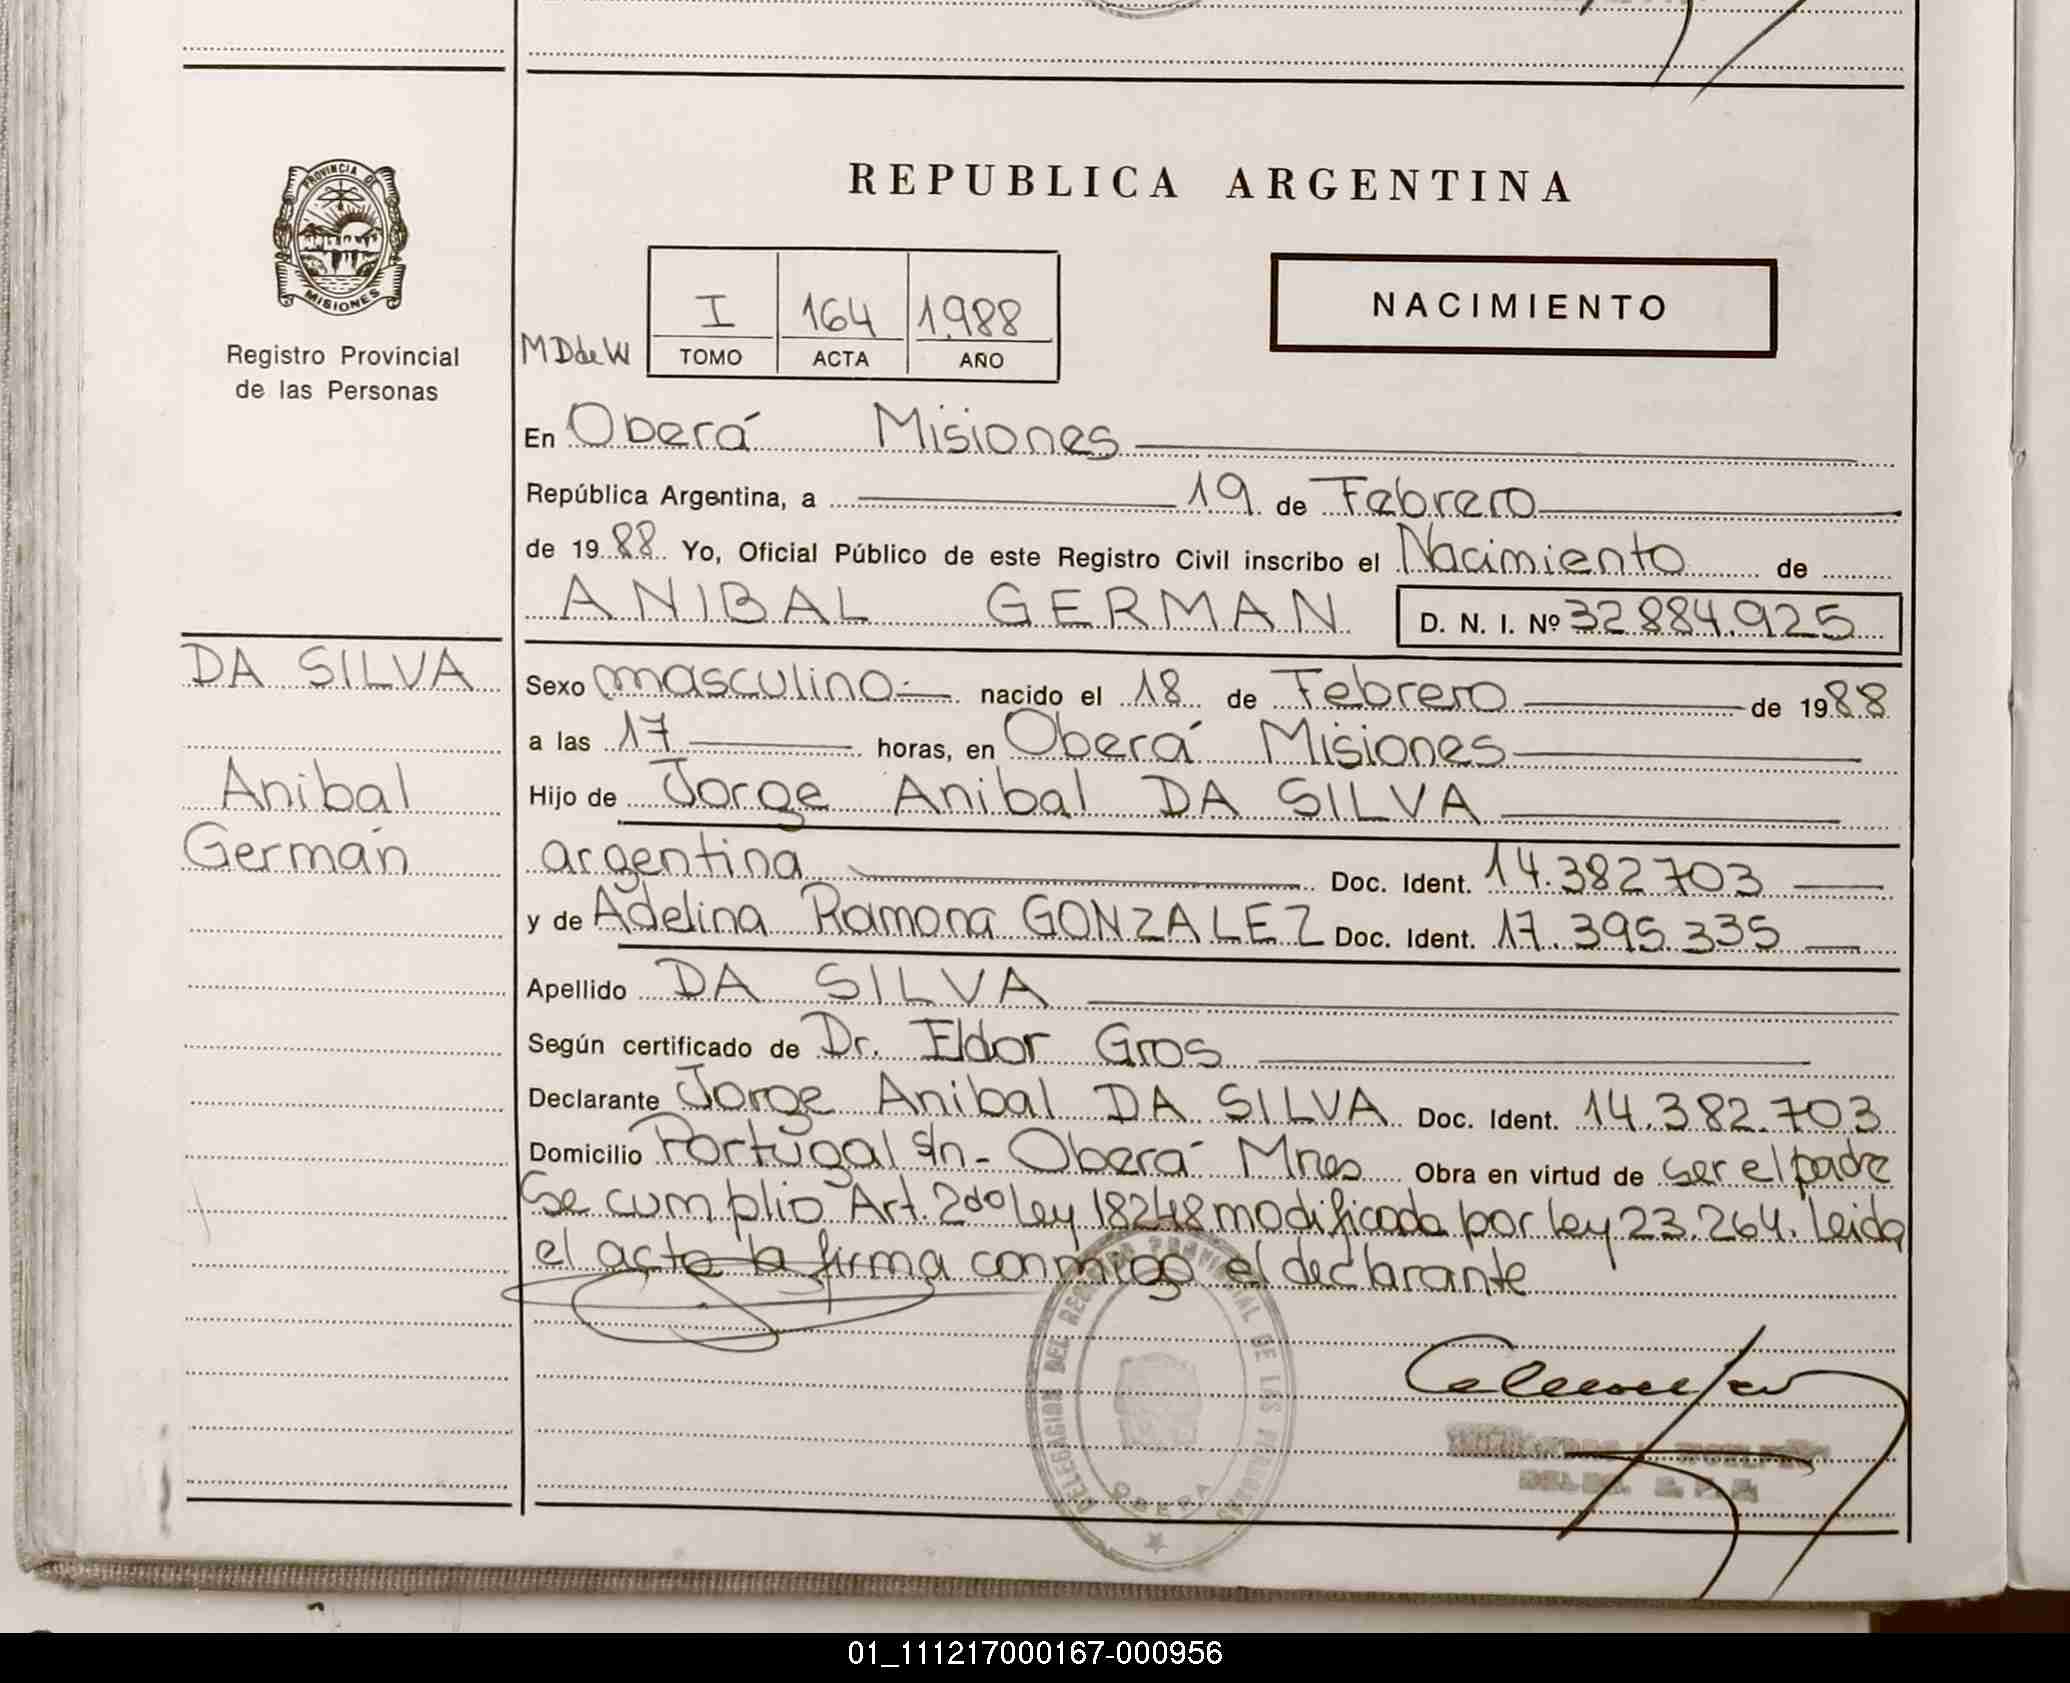 PROVINCIA DE
MISIONES
Registro Provincial
de las Personas
REPUBLICA ARGENTINA
NACIMIENTO
MDdeW
I 164 1.988
TOMO ACTA AÑO
En Oberá Misiones
República Argentina, a 19 de Febrero
de 1988 Yo, Oficial Público de este Registro Civil inscribo el Nacimiento de
ANIBAL GERMAN D. N. I. Nº 32.884.925
DA SILVA
Anibal
Germán
Sexo masculino nacido el 18 de Febrero de 1988
a las 17 horas, en Oberá Misiones
Hijo de Jorge Anibal DA SILVA
argentina Doc. Ident. 14.382.703
y de Adelina Ramona GONZALEZ Doc. Ident. 17.395.335
Apellido DA SILVA
Según certificado de Dr. Eldor Gros
Declarante Jorge Anibal DA SILVA Doc. Ident. 14.382.703
Domicilio Portugal s/n - Oberá Mnes Obra en virtud de ser el padre
Se cumplio Art. 2do ley 18248 modificada por ley 23.264. Leida
el acta la firma conmigo el declarante
DELEGACION DEL REGISTRO PROVINCIAL DE LAS PERSONAS
OBERA
01_111217000167-000956